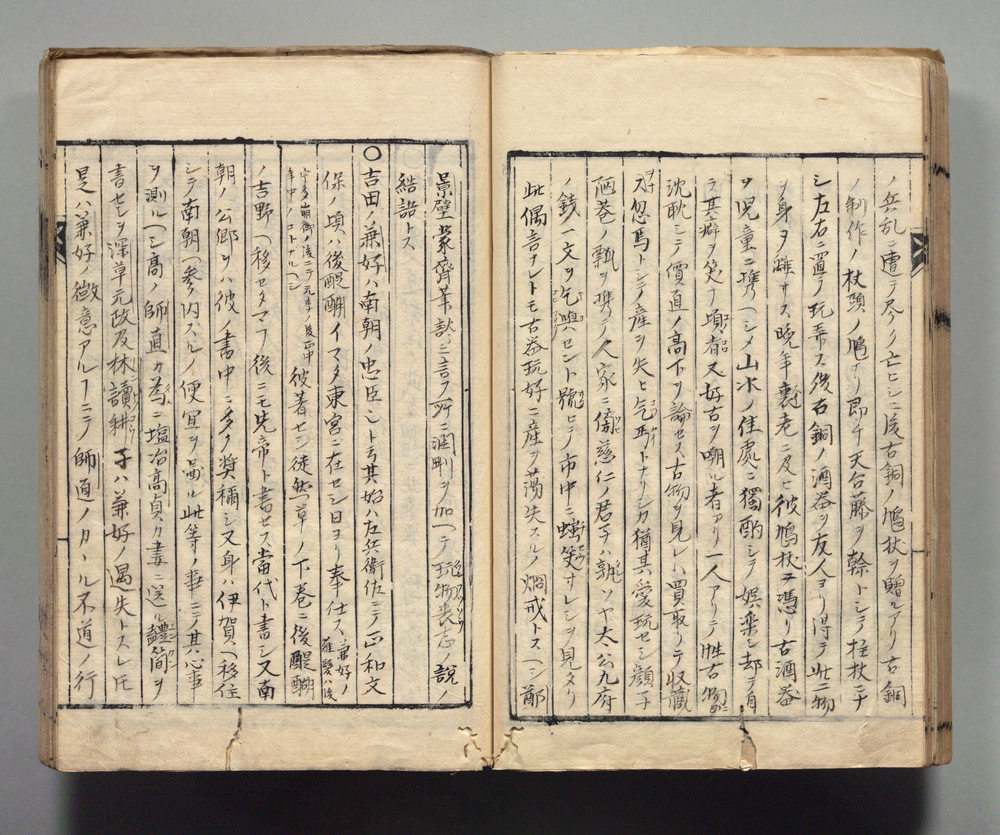 ノ兵乱ニ遭テ尽ク亡ヒシニ後古銅ノ鳩杖ヲ贈ルアリ古銅
ノ制作ノ杖頭ノ鳩ナリ即チ天台藤ヲ幹トシテ拄杖ニテ
シ左右ニ置テ玩弄ス後古銅ノ酒器ヲ友人ヨリ得テ此二物
ヲ身ヲ離サス晩年衰老ニ及ヒ彼鳩杖ニ憑リ古酒器
ヲ児童ニ携ヘシメ山水ノ佳處ニ獨酌シテ娯楽シ却テ自
ラ其癖ヲ笑フ頃都又好古ヲ嘲ル者アリ一人アリテ性古物
沈耽シテ價直ノ高下ヲ論セス古物ヲ見レハ買取リテ收藏
ス忽焉トシテ産ヲ失ヒ乞丐トナリシカ猶其愛玩セシ顔子
陋巷ノ瓢ヲ携テ人家ニ倚慈仁ノ君子ハ孰ソヤ太公九府
ノ銭一文ヲ乞與ヘセント號ヒテ市中ニ蚩笑サレシヲ見タリ
此偶言ナレトモ古器玩好ニ産ヲ蕩失スルノ烱戒トスヘシ鄙
景壁蒙齋筆談ニ言フ所ニ溷刪ヲ加ヘテ玩物喪志ノ説ノ
結語トス
○吉田ノ兼好ハ南朝ノ忠臣シト云其始ハ左兵衛佐ニテ正和文
保ノ頃ハ後醍醐イマタ東宮ニ在セシ日ヨリ奉仕ス兼好ノ薙髪ハ後
宇多崩御ノ後ニテ元亨ノ後正中年中ノコトナルヘシ彼著セシ徒然草ノ下巻ニ後醍醐
ノ吉野ヘ移セタマフ後ニモ先帝ト書セス當代ト書シ又南
朝ノ公卿ヲハ彼ノ書中ニ多ク奨稱シ又身ハ伊賀ヘ移住
シテ南朝ヘ参リ内スルノ便宜ヲ圖ル此等ノ事ニテ其心事
ヲ測ルヘシ高ノ師直カ為ニ塩冶高貞カ妻ニ送ル艶簡ヲ
書セシヲ深草元政及林讀耕子ハ兼好ノ過失トスレ𪜈
是ハ兼好ノ微意アルヿニテ師直ノカヽル不道ノ行